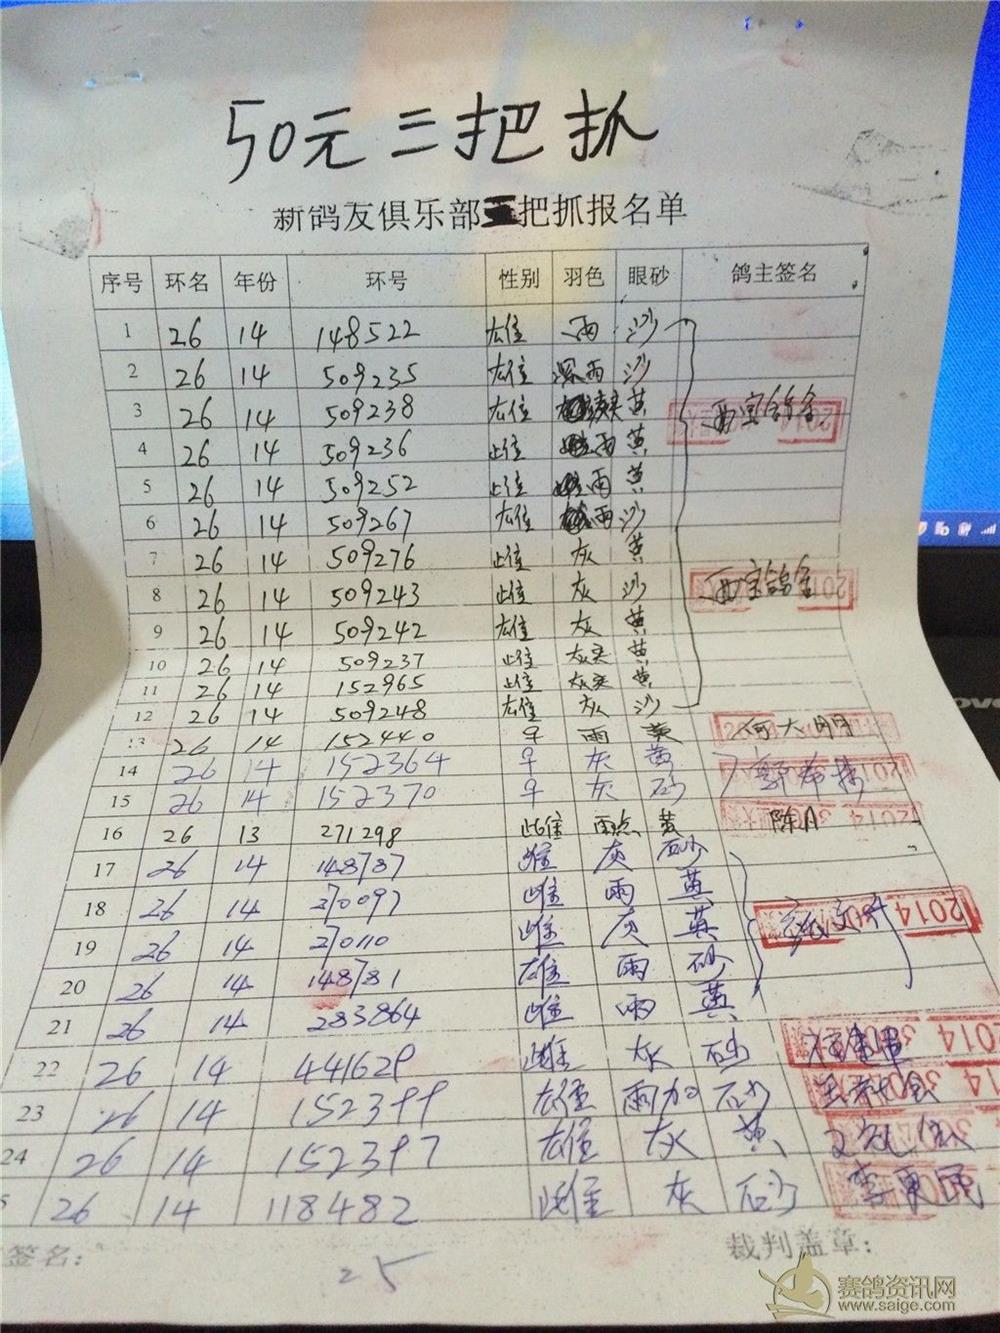 50元三把抓
新鸽友俱乐部 把抓报名单
序号 环名 年份 环号 性别 羽色 眼砂 鸽主签名
1 26 14 148522 雄 雨 沙
2 26 14 509235 雄 深雨 沙
3 26 14 509238 雄 黄 西宝鸽舍
4 26 14 509236 雌 雨 黄
5 26 14 509252 雌 雨 黄
6 26 14 509267 雄 雨 沙
7 26 14 509276 雌 灰 黄
8 26 14 509243 雌 灰 沙 西宝鸽舍
9 26 14 509242 雄 灰 黄
10 26 14 509237 雌 灰 黄
11 26 14 152965 雌 灰 黄
12 26 14 509248 雄 灰 沙
13 26 14 152440 早 雨 黄 何大明
14 26 14 152364 早 灰 黄
15 26 14 152370 早 灰 砂
16 26 13 271298 雌 雨点 黄
17 26 14 148787 雌 灰 砂
18 26 14 270097 雌 雨 黄 2014
19 26 14 270110 雌 灰 黄
20 26 14 148781 雄 雨 砂
21 26 14 283864 雌 雨 黄
22 26 14 441629 雌 灰 砂 2014
23 26 14 152399 雄 雨加 砂
24 26 14 152397 雄 灰 黄
26 14 118482 雌 灰 砂 李更民
签名: 裁判盖章:
25
赛鸽资讯网
www.saige.com